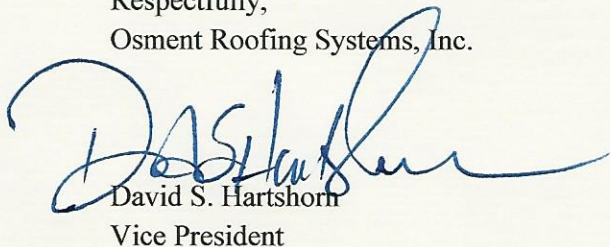 Respectfully,
Osment Roofing Systems, Inc.
David S. Hartshorn
Vice President